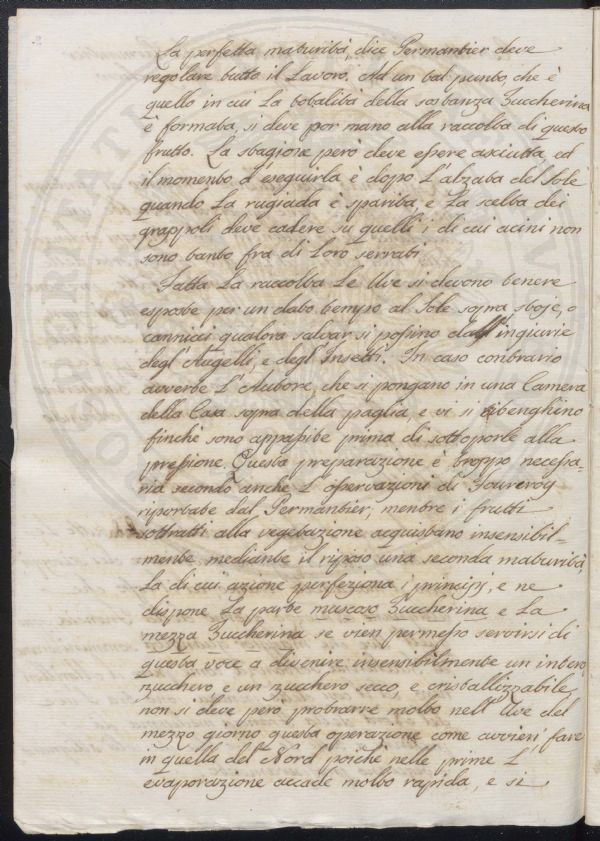 La perfetta maturità, dice Permantier deve
regolare tutto il Lavoro. Ad un tal punto, che è
quello in cui La totalità della sostanza Zuccherina
è formata, si deve por mano alla raccolta di questo
frutto. La stagione però deve essere asciutta, ed
il momento d'eseguirla è dopo L'alzata del Sole
quando La rugiada è sparita, e La scelta dei
grappoli deve cadere su quelli i di cui acini non
sono tanto fra di Loro serrati.
Fatta La raccolta Le Uve si devono tenere
esposte per un dato tempo al Sole sopra stoje, o
cannicci qualora salvar si possino dall'ingiurie
degl'Augelli, e degl'Insetti. In caso contrario
avverte L'Autore, che si pongano in una Camera
della Casa sopra della paglia, e vi si ritenghino
finchè sono appassite prima di sottoporle alla
pressione. Questa preparazione è troppo necessa-
ria secondo anche L'osservazioni di
riportate dal Permantier; mentre i frutti
sottratti alla vegetazione acquistano insensibil-
mente mediante il riposo una seconda maturità,
La di cui azione perfeziona i principj, e ne
dispone La parte muscoso Zuccherina e La
mezza Zuccherina se vien permesso servirsi di
questa voce a divenire insensibilmente un intero
zucchero e un zucchero secco, e cristallizzabile,
non si deve però protrarre molto nell'Uve del
mezzo giorno questa operazione come fare
in quella del Nord poichè nelle prime L'
evaporazione accade molto rapida, e si